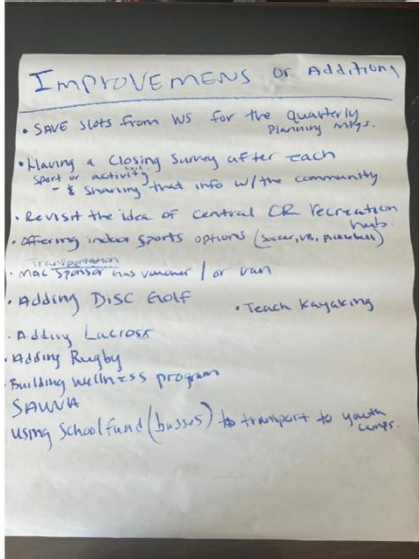 IMPROVEMENS or Additions
• SAVE slots from WS for the quarterly
Planning mtgs.
• Having a Closing Survey after each
sport or activity
- & sharing that info w/the community
• Revisit the idea of central OR recreation
hub.
• Offering indoor sports options (soccer, VB, pickleball)
Transportation
• MAC Sponsor Gas voucher / or van
• Adding Disc Golf
• Teach Kayaking
• Adding Lacross
• Adding Rugby
• Building wellness program
SAUNA
using School fund (busses) to transport to youth
camps.